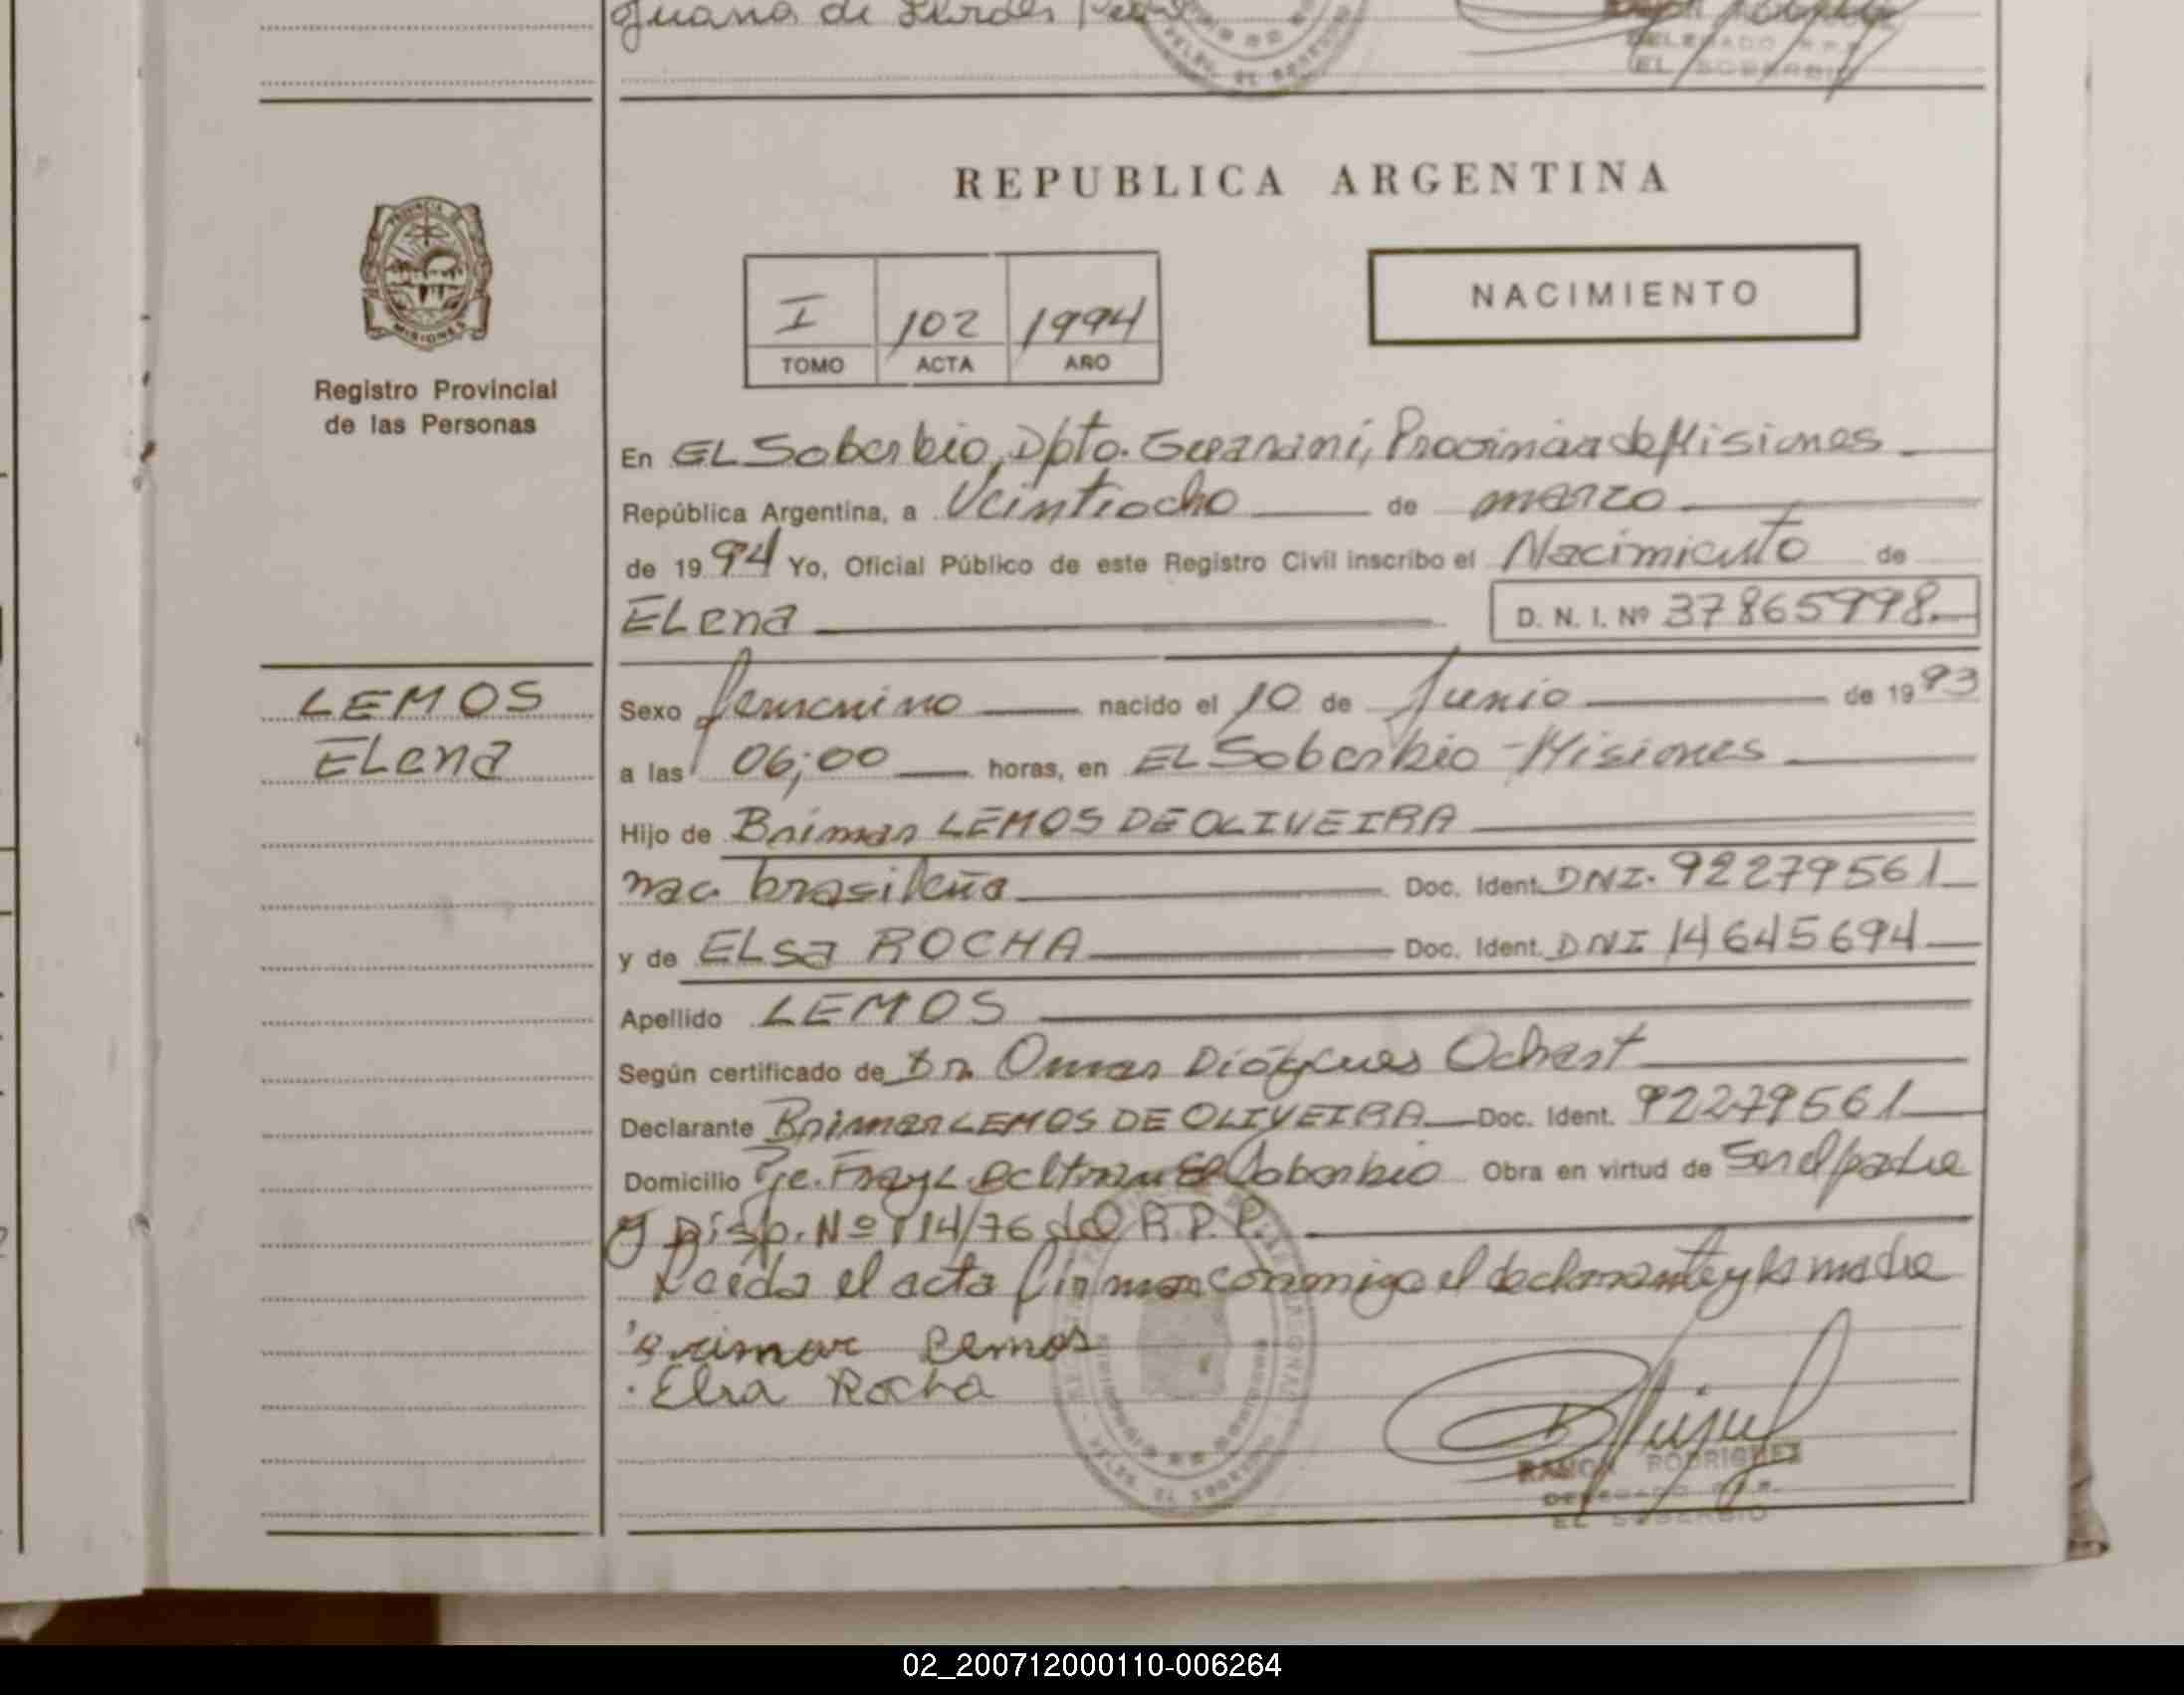 Juana de
DELEGADO R.P.P.
EL SOBERBIO
REPUBLICA ARGENTINA
PROVINCIA DE
MISIONES
Registro Provincial
de las Personas
I 102 1994
TOMO ACTA AÑO
NACIMIENTO
En EL Soberbio, Dpto. Guaraní, Provincia de Misiones
República Argentina, a Veintiocho de marzo
de 1994 Yo, Oficial Público de este Registro Civil inscribo el Nacimiento de
ELena D. N. I. Nº 37865998.
LEMOS
ELena
Sexo femenino nacido el 10 de Junio de 1993
a las 06;00 horas, en EL Soberbio - Misiones
Hijo de Brimar LEMOS DE OLIVEIRA
nac. brasileña Doc. Ident. DNI. 92279561
y de ELsa ROCHA Doc. Ident. DNI 14645694
Apellido LEMOS
Según certificado de Dr. Omar Diógenes
Declarante Brimar LEMOS DE OLIVEIRA Doc. Ident. 92279561
Domicilio Pje. Fray L. Beltran El Soberbio Obra en virtud de Ser el padre
y Disp. Nº 114/76 del R.P.P.
Leida el acta firman conmigo el declarante y la madre
Brimar Lemos
Elsa Rocha
RAMON RODRIGUEZ
DELEGADO R.P.P.
EL SOBERBIO
02_200712000110-006264